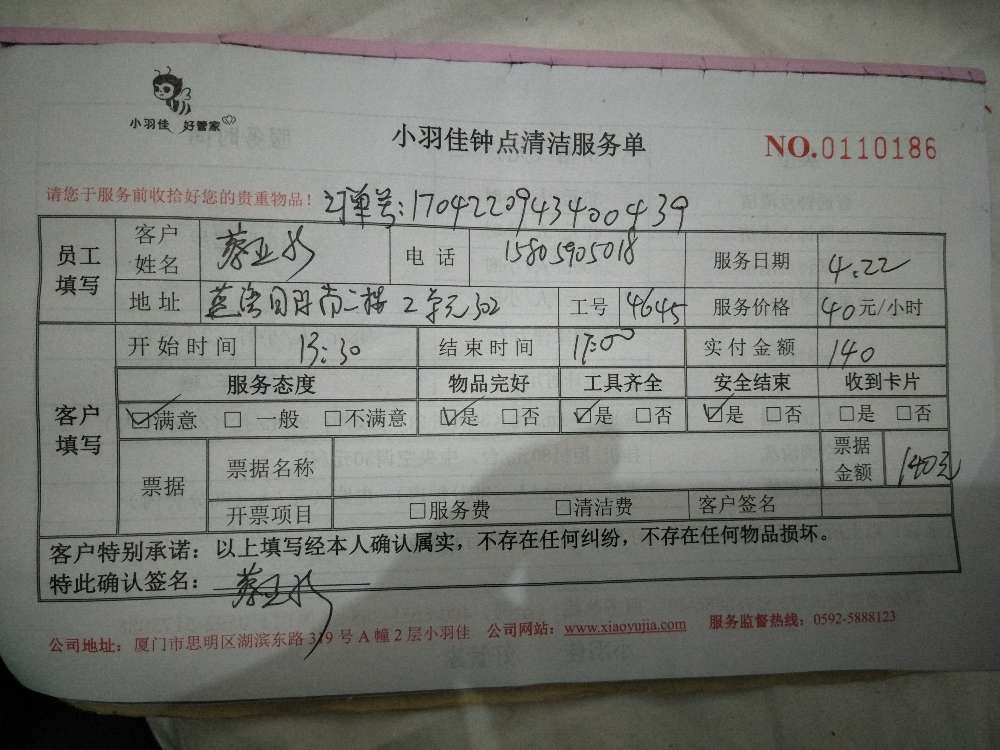 小羽佳 好管家
小羽佳钟点清洁服务单
NO.0110186
请您于服务前收拾好您的贵重物品！ 订单号:1704220943400439
员工填写
客户姓名 蔡亚
电话 15805905018
服务日期 4.22
地址 南二楼 2单元302
工号 4645
服务价格 40元/小时
客户填写
开始时间 13:30
结束时间 17:00
实付金额 140
服务态度 物品完好 工具齐全 安全结束 收到卡片
☑满意 □一般 □不满意 ☑是 □否 ☑是 □否 ☑是 □否 □是 □否
票据
票据名称
票据金额 140元
开票项目 □服务费 □清洁费 客户签名
客户特别承诺：以上填写经本人确认属实，不存在任何纠纷，不存在任何物品损坏。
特此确认签名：蔡亚
公司地址：厦门市思明区湖滨东路319号A幢2层小羽佳 公司网站：www.xiaoyujia.com 服务监督热线：0592-5888123